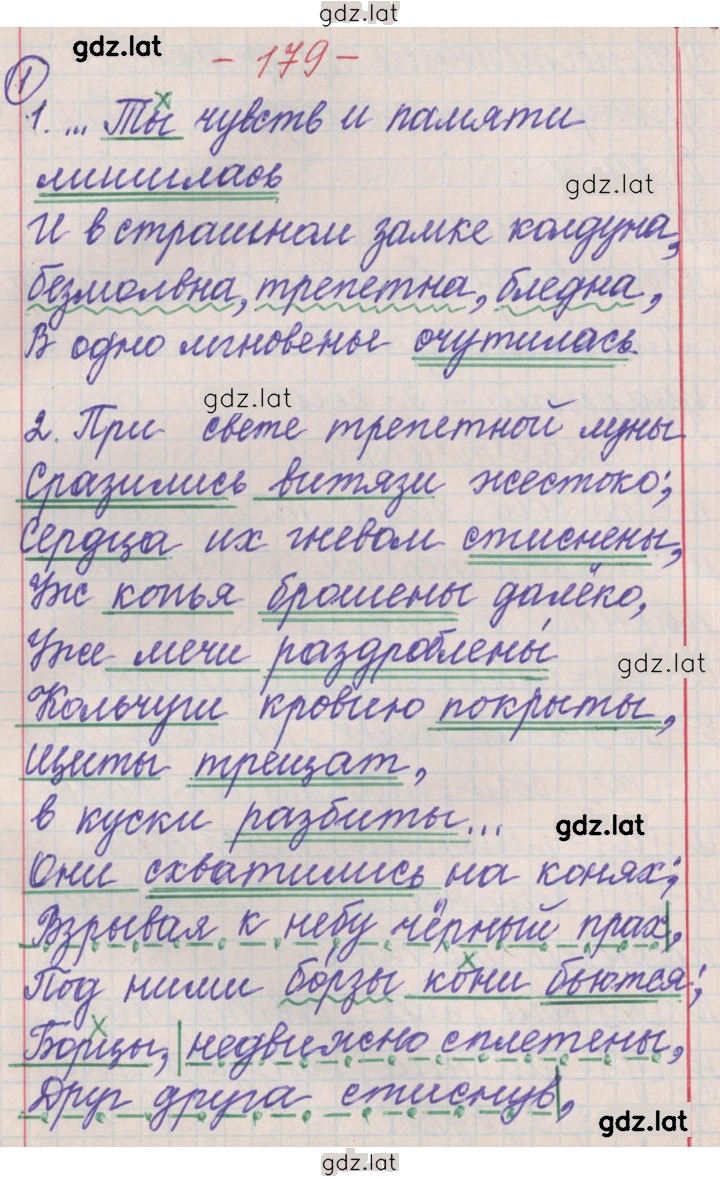 gdz.lat
gdz.lat
- 179 -
1
1. ... Ты чувств и памяти
лишилась
gdz.lat
И в страшном замке колдуна,
безмолвна, трепетна, бледна,
В одно мгновенье очутилась.
gdz.lat
2. При свете трепетной луны
Сразились витязи жестоко;
Сердца их гневом стиснены,
Уж копья брошены далёко,
Уже мечи раздроблены
gdz.lat
Кольчуги кровию покрыты,
Щиты трещат,
в куски разбиты...
gdz.lat
Они схватились на конях;
Взрывая к небу чёрный прах,
Под ними борзы кони бьются;
Борцы, недвижно сплетены,
Друг друга стиснув,
gdz.lat
gdz.lat